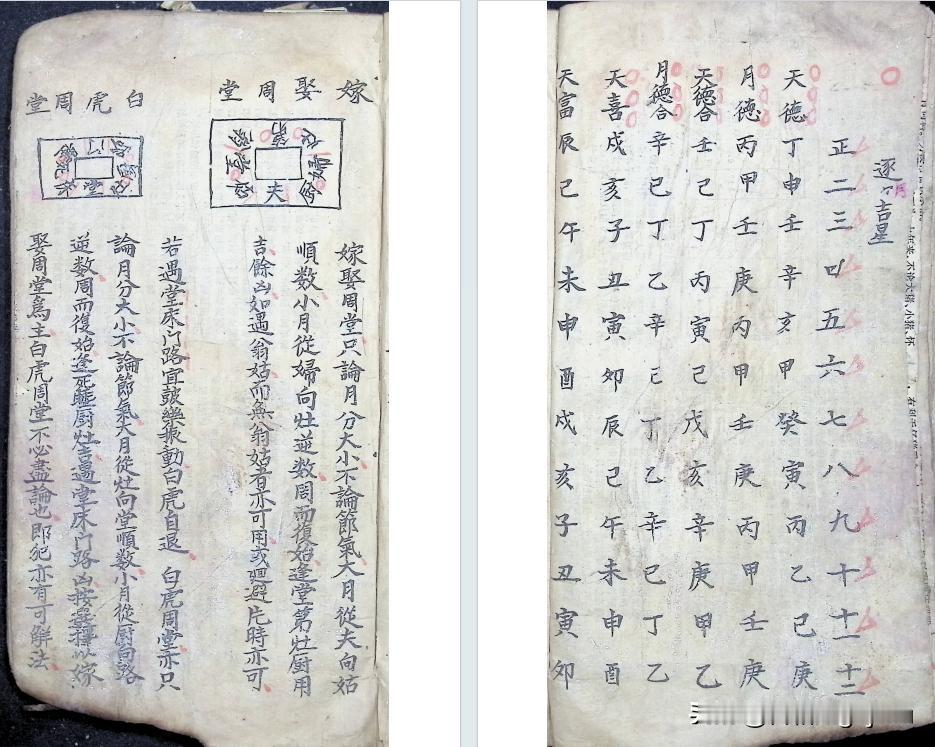 逐々月吉星
正二三四五六七八九十十一十二
天德丁申壬辛亥甲癸寅丙乙己庚
月德丙甲壬庚丙甲壬庚丙甲壬庚
天德合壬己丁丙寅己戊亥辛庚甲乙
月德合辛巳丁乙辛己丁乙辛巳丁乙
天喜戍亥子丑寅卯辰巳午未申酉
天富辰巳午未申酉戌亥子丑寅卯
嫁娶周堂
第
灶
婦
厨
夫
姑
堂
翁
嫁娶周堂只論月分大小不論節氣大月從夫向姑
順数小月從婦向灶逆数周而復始逢堂第灶厨用
吉餘凶如遇翁姑而無翁姑者亦可用或廻避片時亦可
白虎周堂
門
路
若遇堂床门路宜鼓樂振動白虎自退 白虎周堂亦只
論月分大小不論節氣大月從灶向堂順数小月從厨向路
逆数周而復始逢死睡厨灶吉遇堂床门路凶按選擇以嫁
娶周堂為主白虎周堂不必盡論也即犯亦有可解法